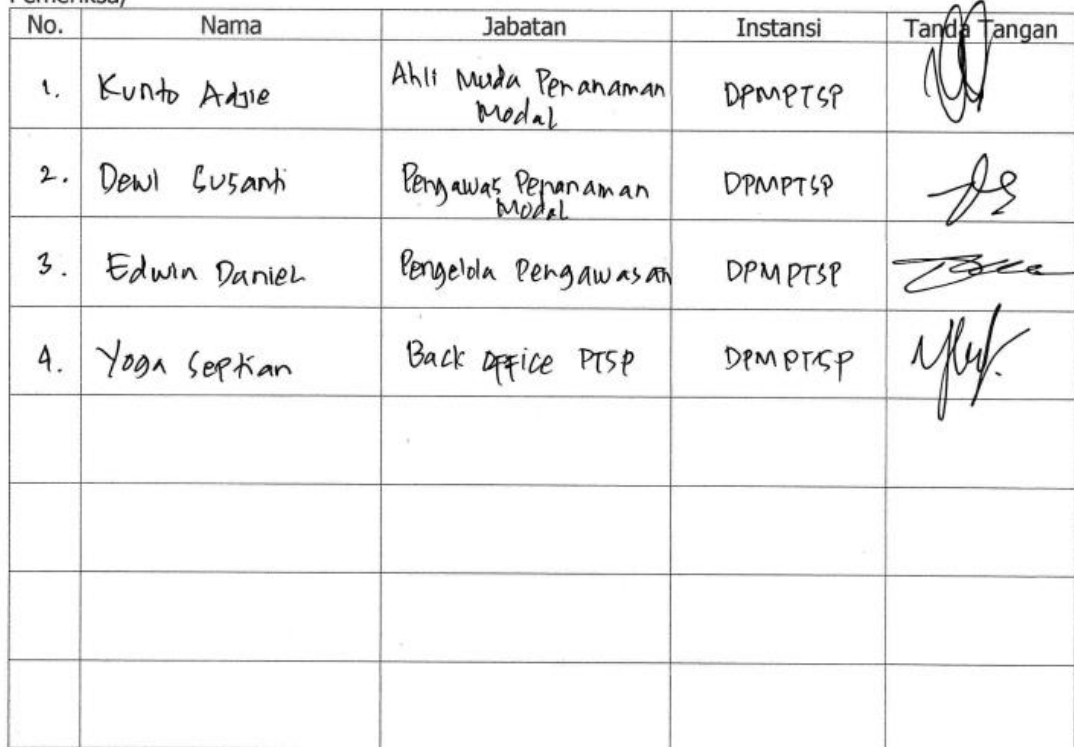 Pemeriksa,
No. Nama Jabatan Instansi Tanda Tangan
1. Kunto Adjie Ahli Muda Penanaman Modal DPMPTSP
2. Dewi Susanti Pengawas Penanaman Modal DPMPTSP
3. Edwin Daniel Pengelola Pengawasan DPMPTSP
4. Yoga Septian Back Office PTSP DPMPTSP